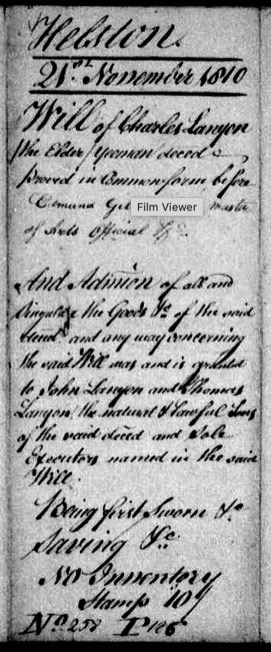 Helston.
21st November 1810
Will of Charles Lanyon
(the Elder) Yeoman decd
proved in Common form before
Edmund Gil Film Viewer Master
of Arts Official &c.
And Admion of all and
Singular the Goods &c of the said
decd and any way concerning
the said Will was and is granted
to John Lanyon and Thomas
Lanyon the natural & lawful Sons
of the said decd and Sole
Executors named in the said
Will.
Being first Sworn &c
Saving &c
No Inventory
Stamp 10/
No 258 P 186